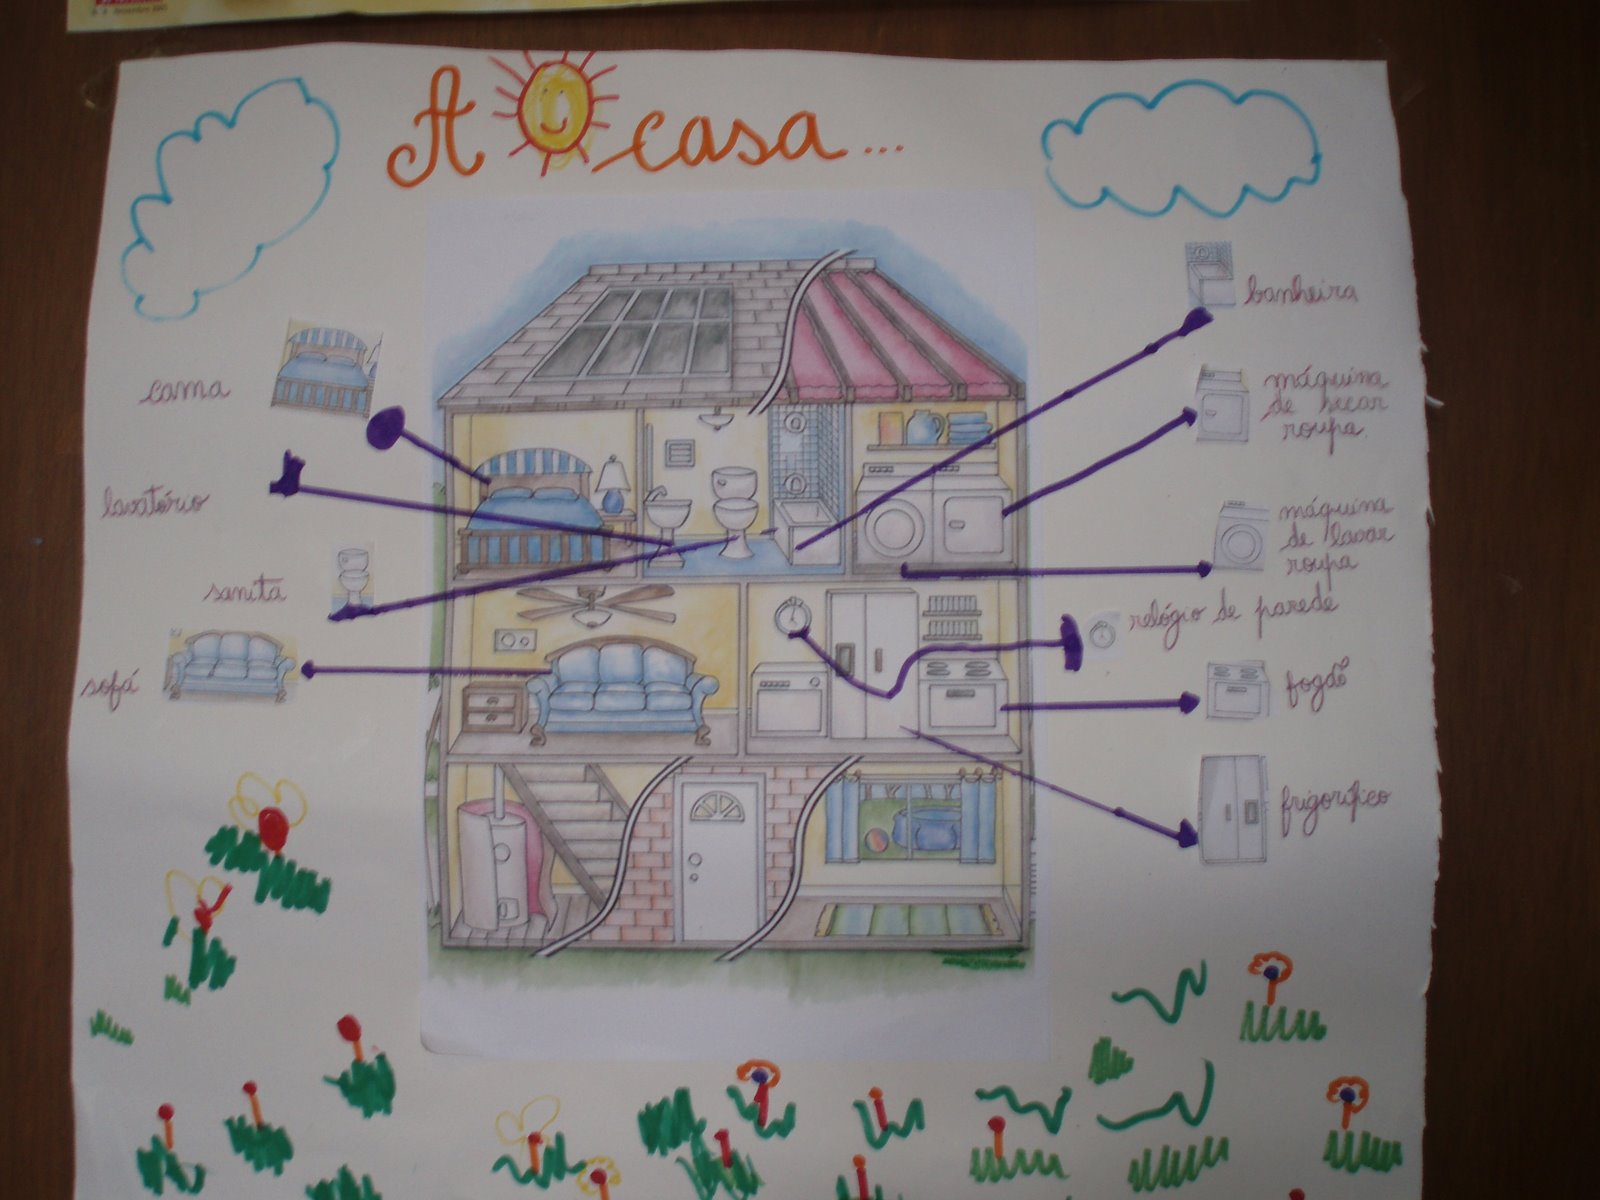 A casa...
cama
lavatório
sanita
sofá
banheira
máquina
de secar
roupa.
máquina
de lavar
roupa
relógio de parede
fogão
frigorífico